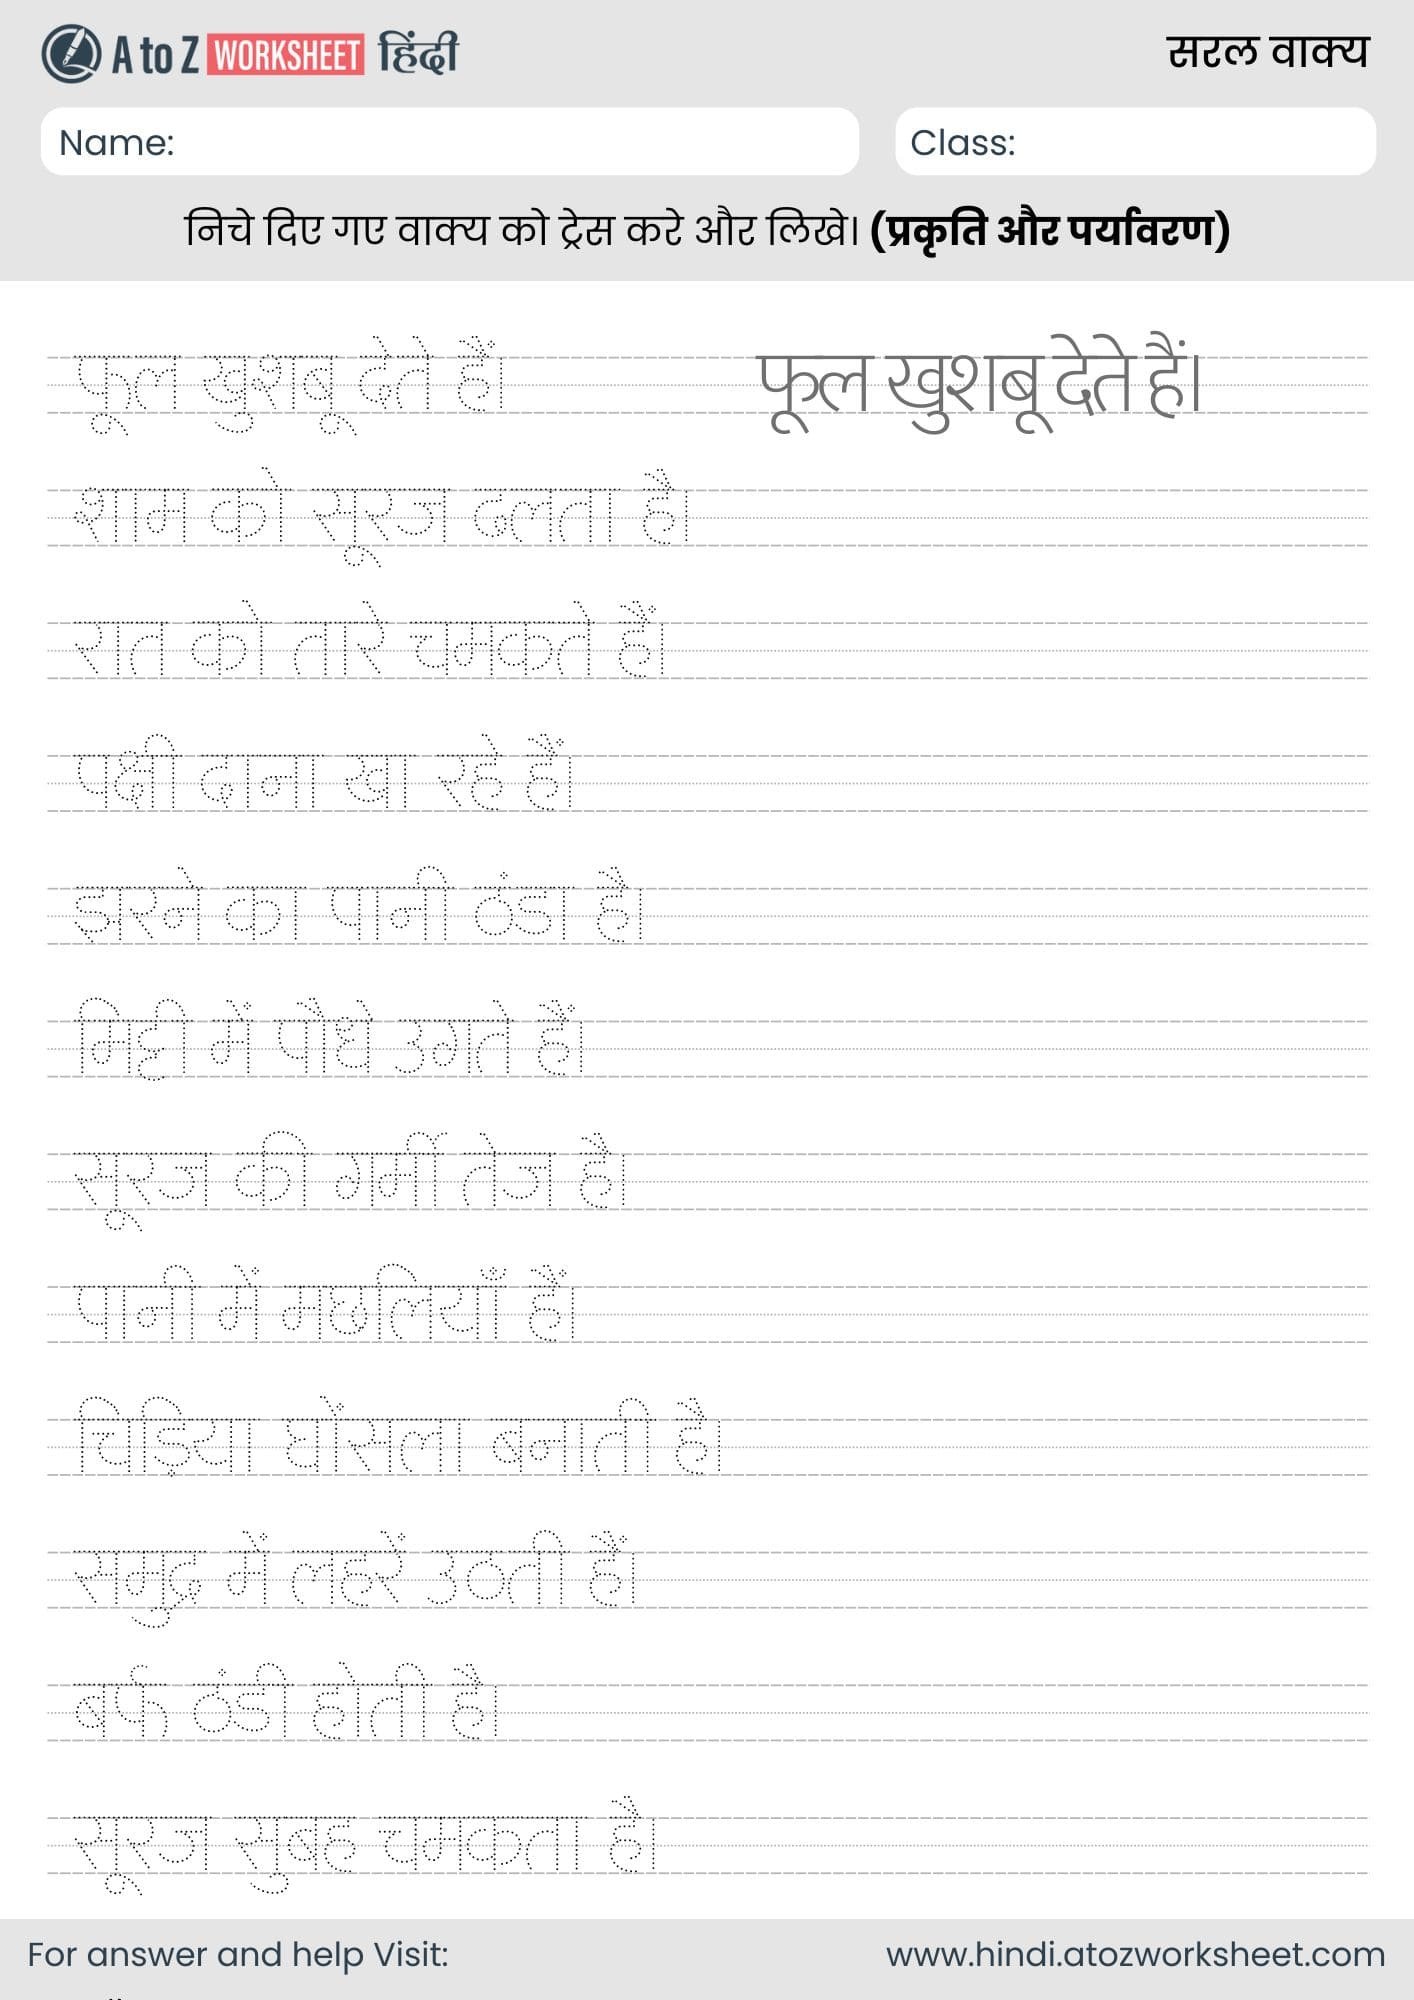 A to Z WORKSHEET हिंदी
सरल वाक्य
Name:
Class:
निचे दिए गए वाक्य को ट्रेस करे और लिखे। (प्रकृति और पर्यावरण)
फूल खुशबू देते हैं। फूल खुशबू देते हैं।
शाम को सूरज ढलता है।
रात को तारे चमकते हैं।
पक्षी दाना खा रहे हैं।
झरने का पानी ठंडा है।
मिट्टी में पौधे उगते हैं।
सूरज की गर्मी तेज है।
पानी में मछलियाँ हैं।
चिड़िया घोंसला बनाती है।
समुद्र में लहरें उठती हैं।
बर्फ ठंडी होती है।
सूरज सुबह चमकता है।
For answer and help Visit:
www.hindi.atozworksheet.com